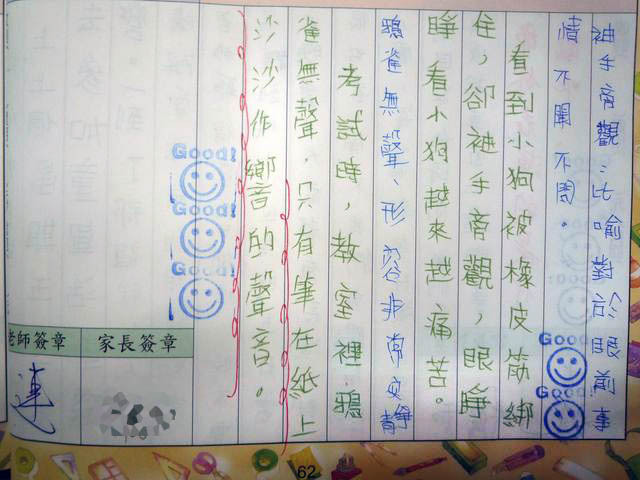 袖手帝觀：比喻對於眼前事
情不聞不問。
看到小狗被橡皮筋綁
住，卻袖手帝觀，眼睜
睜看小狗越來越痛苦。
鴉雀無聲、形容非常安靜
考試時，教室裡鴉
雀無聲，只有筆在紙上
沙沙作嚮的聲音。
Good!
Good!
Good!
Good!
Good!
家長簽章
老師簽章
連
62